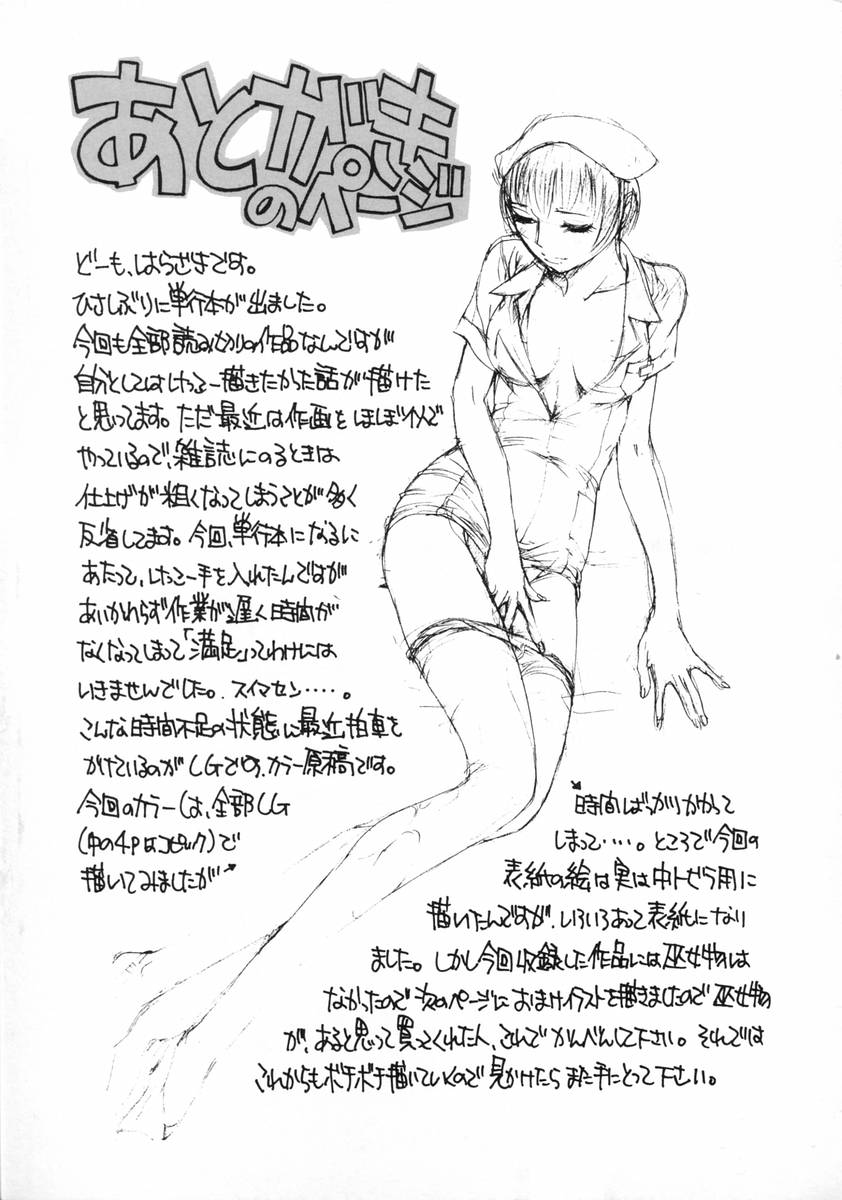 あとがき
のページ
どーも、はらざきです。
ひさしぶりに単行本が出ました。
今回も全部読み切りの作品なんですが
自分としてはけっこー描きたかった話が描けた
と思ってます。ただ最近は作画をほぼ1人で
やっているので、雑誌にのるときは
仕上げが粗くなってしまうことが多く
反省してます。今回、単行本になるに
あたって、けっこー手を入れたんですが
あいかわらず作業が遅く時間が
なくなってしまって「満足」ってわけには
いきませんでした。スイマセン……。
こんな時間不足の状態に最近拍車を
かけているのがCGです、カラー原稿です。
今回のカラーは、全部CG
(中の4Pはコピック)で
描いてみましたが
時間ばっかりかかって
しまって……。ところで今回の
表紙の絵は実は中トビラ用に
描いたんですが、いろいろあって表紙になり
ました。しかし今回収録した作品には巫女物は
なかったので次のページにおまけイラストを描きましたので巫女物
が、あると思って買ってくれた人、これでかんべんして下さい。それでは
これからもボチボチ描いていくので見かけたらまた手にとって下さい。